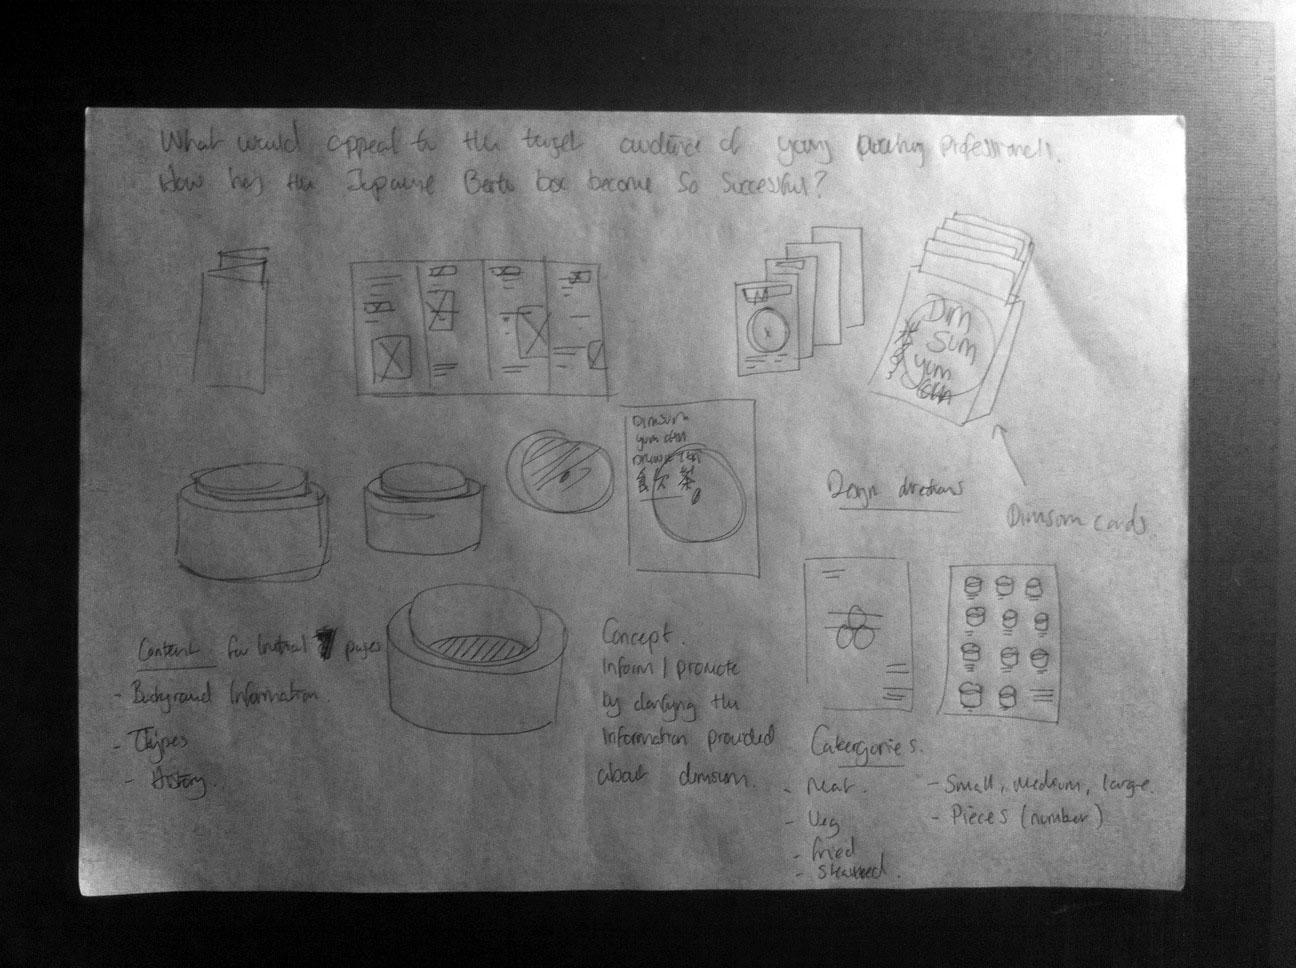 What would appeal to the target audience of young working professionals.
How has the Japanese Bento box become so successful?
Dim
Sum
yum
cha
Dimsum
yum cha
Drink tea
飲 茶
Design directions
Dimsum cards.
Content for initial pages
- Background Information
- Types
- History.
Concept.
Inform / promote
by clarifying the
information provided
about dimsum.
Catergories.
- Meat.
- Veg
- fried
- steamed.
- Small, medium, large.
- Pieces (number)